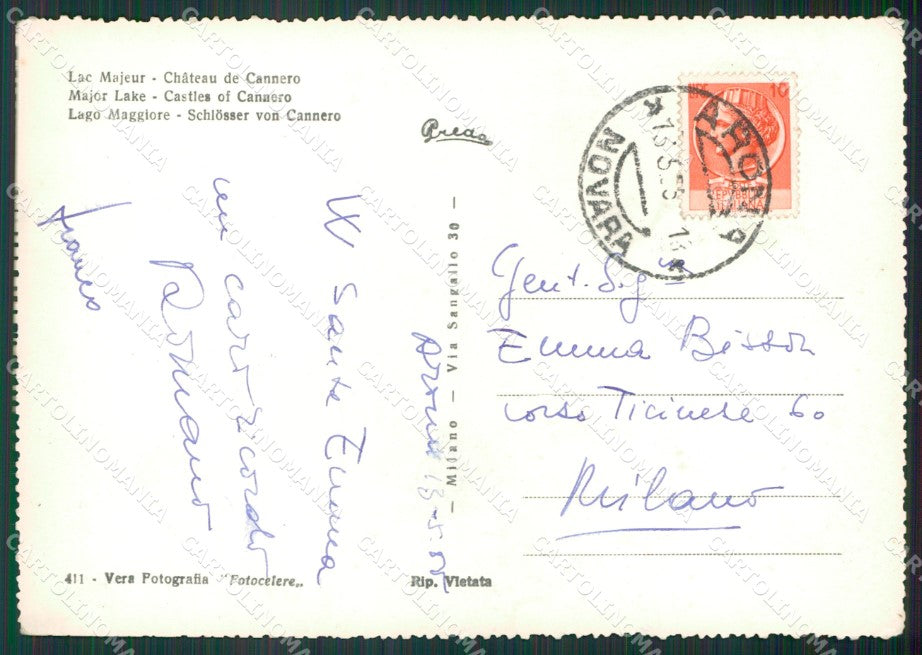 Lac Majeur - Château de Cannero
Major Lake - Castles of Cannero
Lago Maggiore - Schlösser von Cannero
Arona 13-5-55
W Santa Emma
un caro ricordo
Romano
— Milano — Via Sangallo 30 —
LIRE 10
REPVBBLICA
ITALIANA
ARONA
NOVARA
Gent. Sig
Emma Bisson
corso Ticinese 60
Milano
411 - Vera Fotografia "Fotocelere„
Rip. Vietata
CARTOLINOMANIA